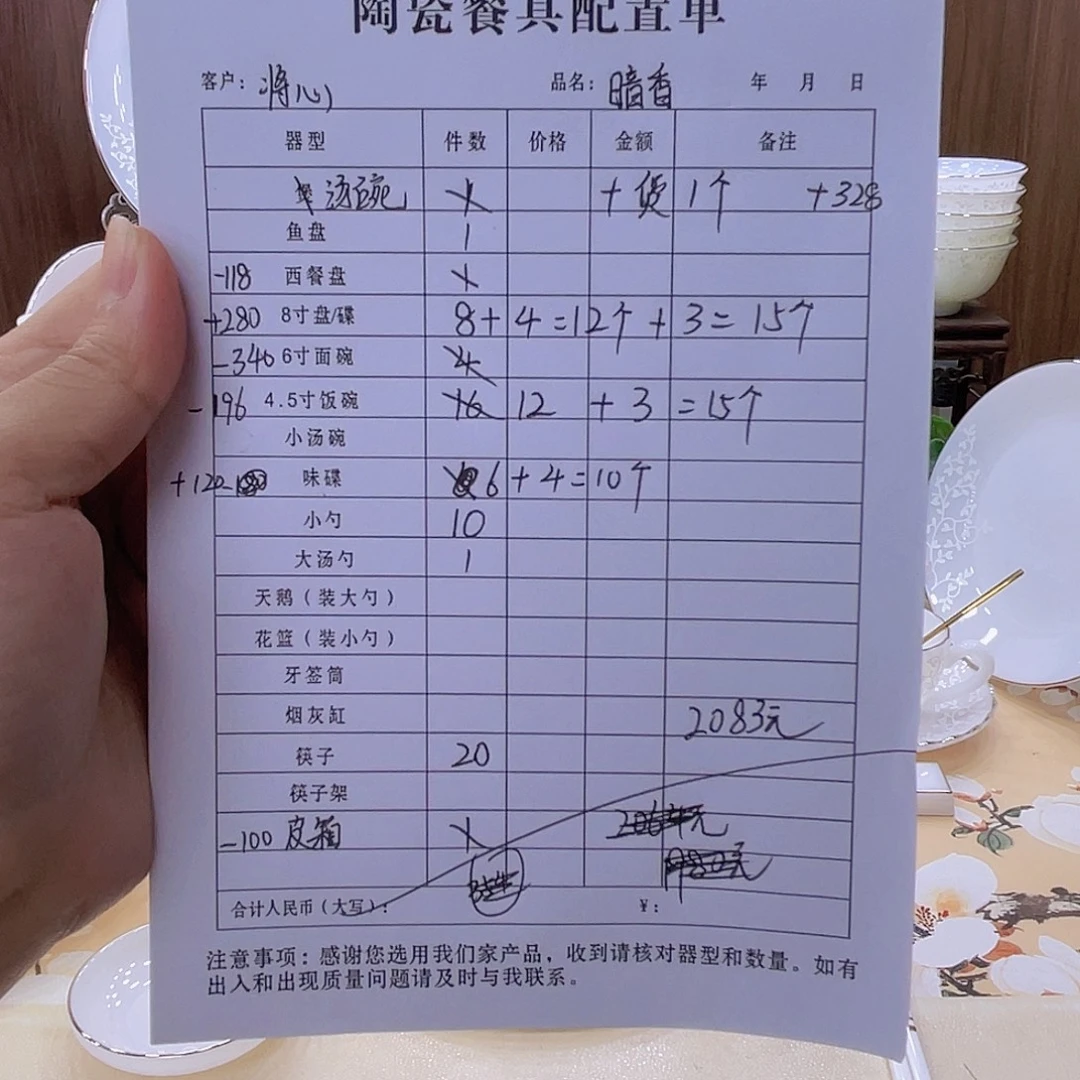 陶瓷餐具配置单
客户: 将心 品名: 暗香 年 月 日
器型 件数 价格 金额 备注
汤碗 1 + 煲 1个 +328
鱼盘 1
-118 西餐盘 1
+280 8寸盘/碟 8+4=12个+3=15个
-340 6寸面碗 4
-196 4.5寸饭碗 16 12 +3 =15个
小汤碗
+120 味碟 6+4=10个
小勺 10
大汤勺 1
天鹅(装大勺)
花篮(装小勺)
牙签筒
烟灰缸 2083元
筷子 20
筷子架
-100 皮箱 1
合计人民币(大写): ¥:
注意事项:感谢您选用我们家产品，收到请核对器型和数量。如有
出入和出现质量问题请及时与我联系。